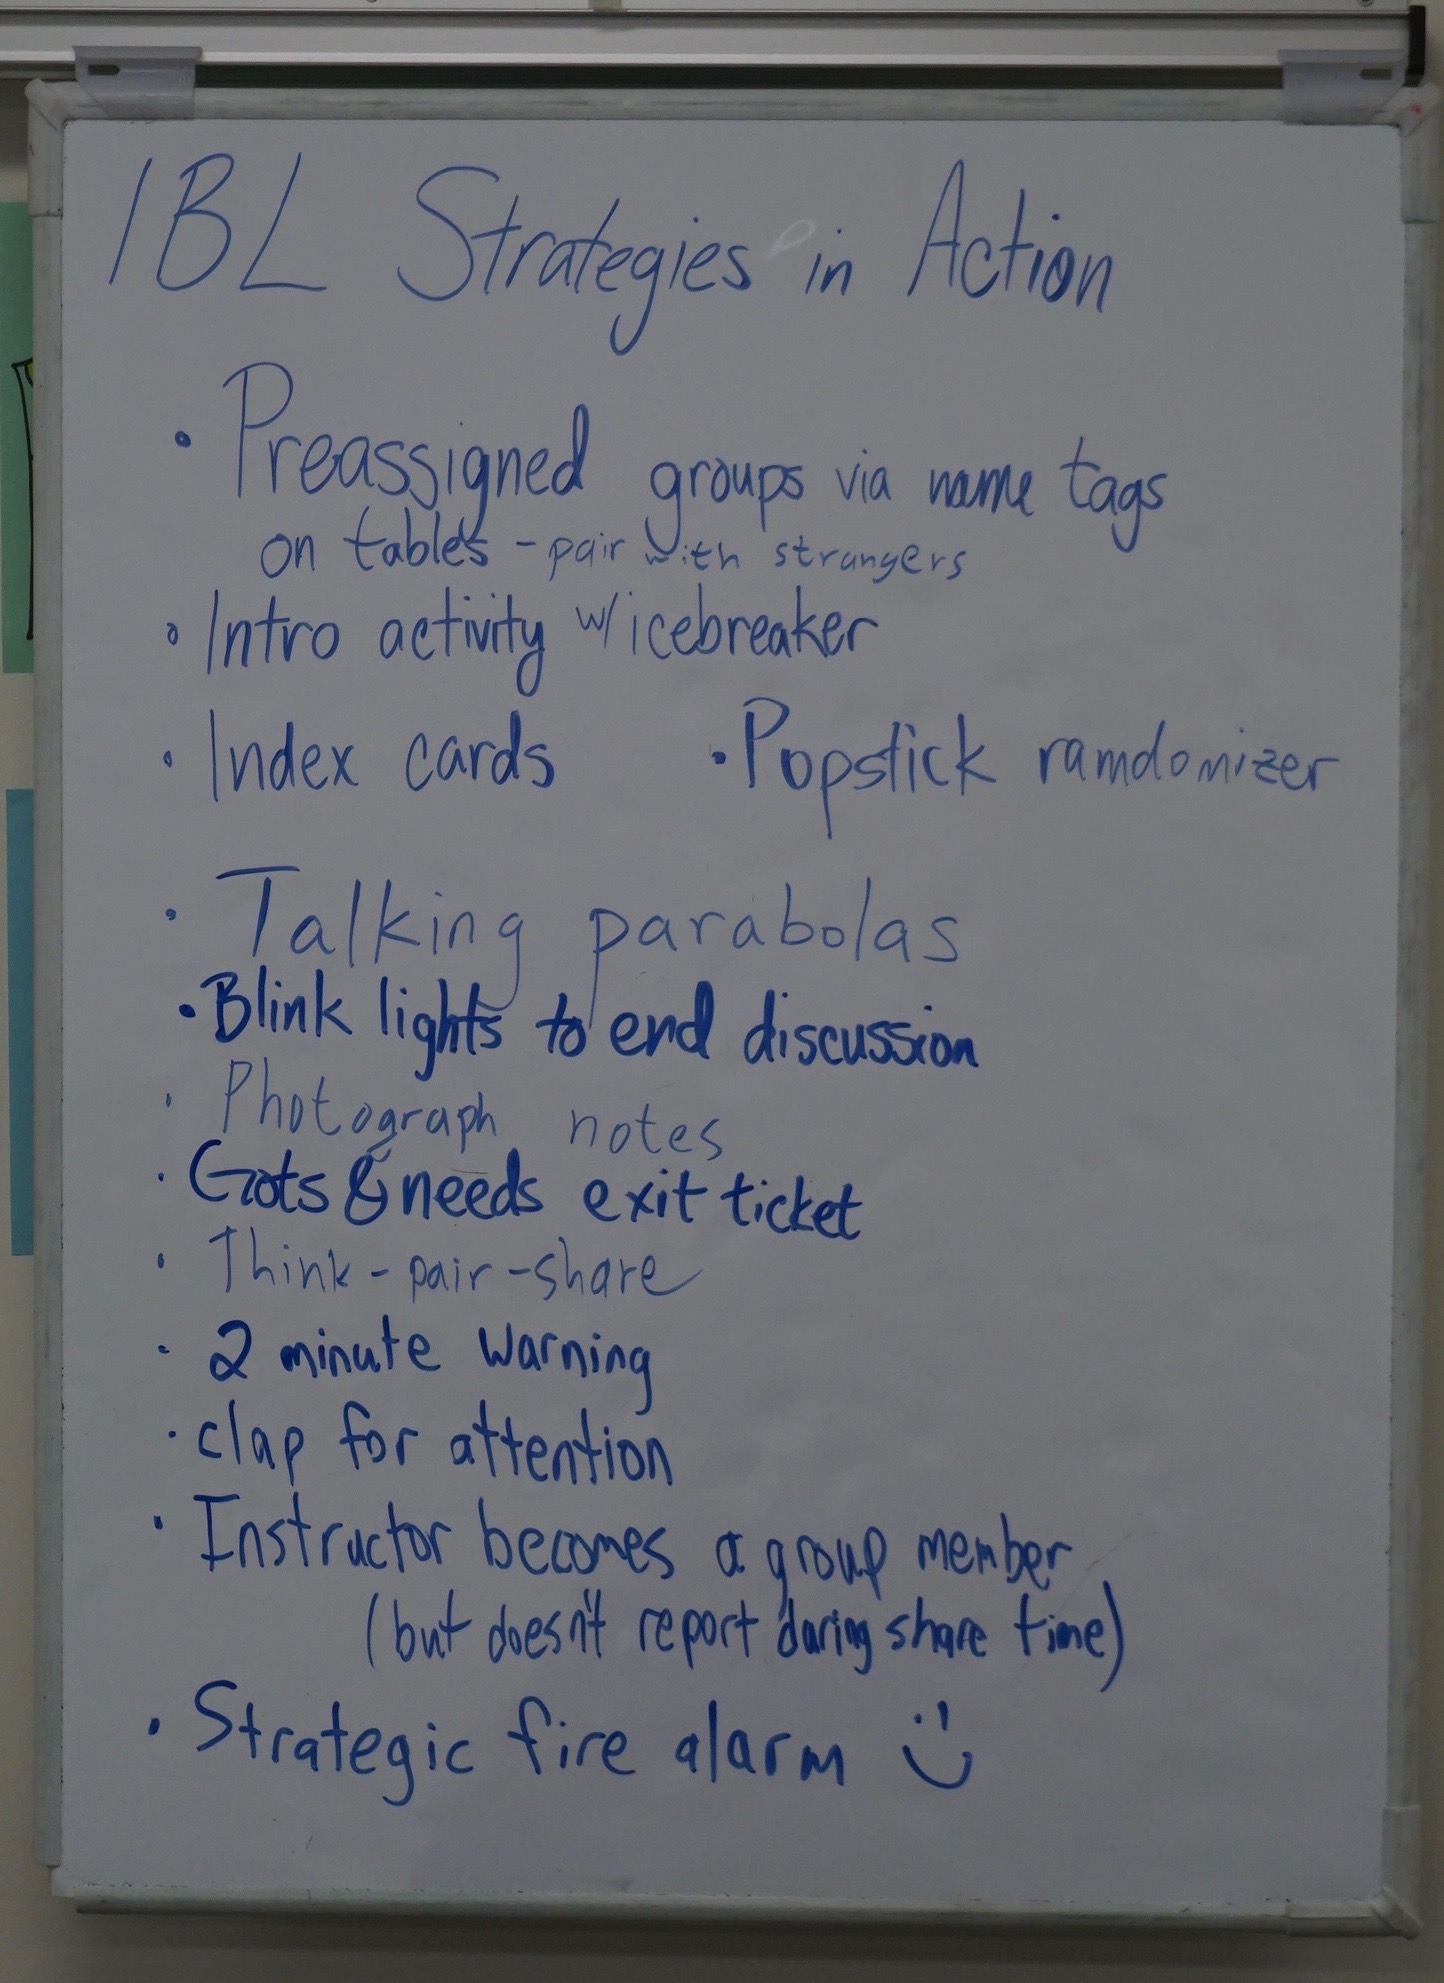 IBL Strategies in Action
• Preassigned groups via name tags
on tables - pair with strangers
• Intro activity w/icebreaker
• Index cards • Popstick ramdomizer
• Talking parabolas
• Blink lights to end discussion
• Photograph notes
• Gots & needs exit ticket
• Think-pair-share
• 2 minute warning
• clap for attention
• Instructor becomes a group member
(but doesn't report during share time)
• Strategic fire alarm